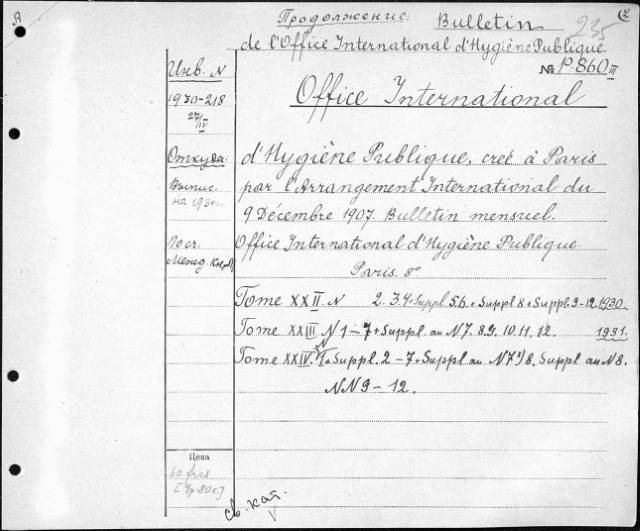 Продолжение: Bulletin 235 2
de l'Office International d'Hygiène Publique.
№ P.860 III
Инв. N
1930-218
27/IV
Office International
Откуда:
Выпис.
на 1930г.
d'Hygiène Publique, creé à Paris
par l'Arrangement International du
9 Décembre 1907. Bulletin mensuel.
Office International d'Hygiène Publique
Paris. 8°
Tome XXII. N 2. 3.4+Suppl 5.6.+Suppl 8+Suppl. 9-12. 1930.
Tome XXIII N 1-7+Suppl au N7. 8.9. 10.11. 12. 1931.
Tome XXIV. N 1+Suppl. 2-7+Suppl au N7 8. Suppl au N8.
NN 9-12.
Цена
60 frcs
св. кат.